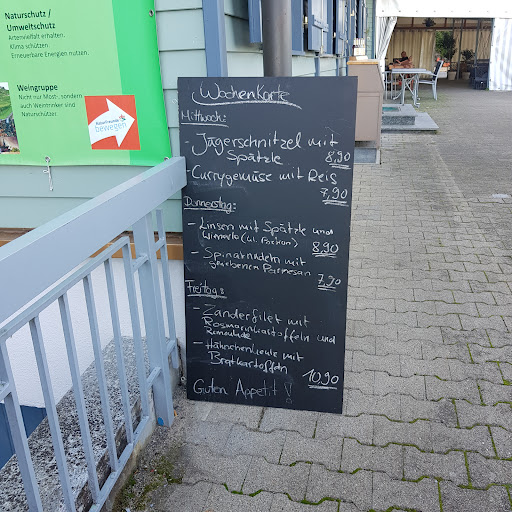 Naturschutz /
Umweltschutz
Artenvielfalt erhalten.
Klima schützen
Erneuerbare Energien nutzen.
Weingruppe
Nicht nur Most-, sondern
auch Weintrinker sind
Naturschützer.
NaturFreunde
bewegen
Wochenkarte
Mittwoch:
- Jägerschnitzel mit
Spätzle 8,90
- Currygemüse mit Reis
7,90
Donnerstag:
- Linsen mit Spätzle und
Wienerle (kl. Portion) 8,90
- Spinatnudeln mit
geriebenen Parmesan 7,90
Freitag:
- Zanderfilet mit
Rosmarinkartoffeln und
Remoulade
- Hähnchenkeule mit
Bratkartoffeln 10,90
Guten Appetit!